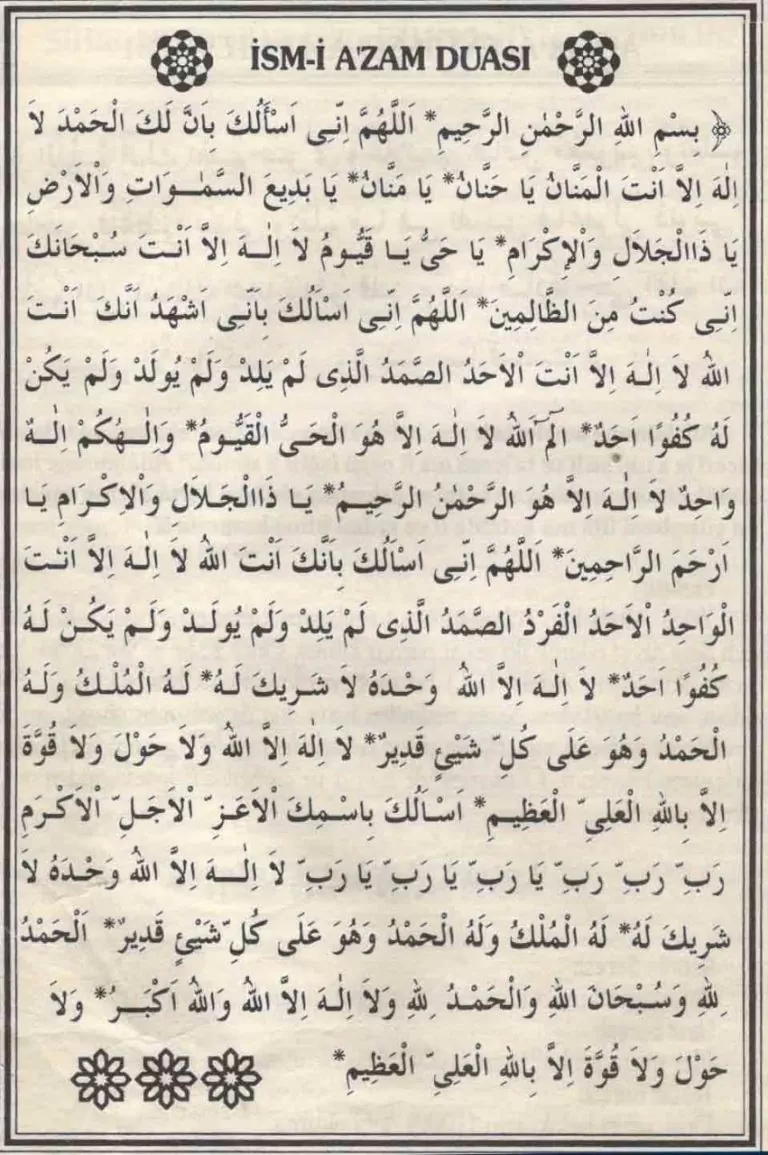 İSM-İ A'ZAM DUASI
بِسْمِ اللهِ الرَّحْمٰنِ الرَّحِيمِ* اَللَّهُمَّ اِنِّى اَسْأَلُكَ بِاَنَّ لَكَ الْحَمْدَ لاَ
اِلٰهَ اِلاَّ اَنْتَ الْمَنَّانُ يَا حَنَّانُ* يَا مَنَّانُ* يَا بَدِيعَ السَّمٰوَاتِ وَاْلاَرْضِ
يَا ذَاالْجَلاَلِ وَاْلاِكْرَامِ* يَا حَىُّ يَا قَيُّومُ لاَ اِلٰهَ اِلاَّ اَنْتَ سُبْحَانَكَ
اِنِّى كُنْتُ مِنَ الظَّالِمِينَ* اَللَّهُمَّ اِنِّى اَسْاَلُكَ بِاَنِّى اَشْهَدُ اَنَّكَ اَنْتَ
اللهُ لاَ اِلٰهَ اِلاَّ اَنْتَ اْلاَحَدُ الصَّمَدُ الَّذِى لَمْ يَلِدْ وَلَمْ يُولَدْ وَلَمْ يَكُنْ
لَهُ كُفُوًا اَحَدٌ* الٓمٓ اَللهُ لاَ اِلٰهَ اِلاَّ هُوَ الْحَىُّ الْقَيُّومُ* وَاِلٰهُكُمْ اِلٰهٌ
وَاحِدٌ لاَ اِلٰهَ اِلاَّ هُوَ الرَّحْمٰنُ الرَّحِيمُ* يَا ذَاالْجَلاَلِ وَاْلاِكْرَامِ يَا
اَرْحَمَ الرَّاحِمِينَ* اَللَّهُمَّ اِنِّى اَسْاَلُكَ بِاَنَّكَ اَنْتَ اللهُ لاَ اِلٰهَ اِلاَّ اَنْتَ
الْوَاحِدُ اْلاَحَدُ الْفَرْدُ الصَّمَدُ الَّذِى لَمْ يَلِدْ وَلَمْ يُولَدْ وَلَمْ يَكُنْ لَهُ
كُفُوًا اَحَدٌ* لاَ اِلٰهَ اِلاَّ اللهُ وَحْدَهُ لاَ شَرِيكَ لَهُ* لَهُ الْمُلْكُ وَلَهُ
الْحَمْدُ وَهُوَ عَلَى كُلِّ شَيْئٍ قَدِيرٌ* لاَ اِلٰهَ اِلاَّ اللهُ وَلاَ حَوْلَ وَلاَ قُوَّةَ
اِلاَّ بِاللهِ الْعَلِىِّ الْعَظِيمِ* اَسْاَلُكَ بِاسْمِكَ اْلاَعَزِّ اْلاَجَلِّ اْلاَكْرَمِ
رَبِّ رَبِّ رَبِّ يَا رَبِّ يَا رَبِّ يَا رَبِّ لاَ اِلٰهَ اِلاَّ اللهُ وَحْدَهُ لاَ
شَرِيكَ لَهُ* لَهُ الْمُلْكُ وَلَهُ الْحَمْدُ وَهُوَ عَلَى كُلِّ شَيْئٍ قَدِيرٌ* اَلْحَمْدُ
لِلّٰهِ وَسُبْحَانَ اللهِ وَالْحَمْدُ لِلّٰهِ وَلاَ اِلٰهَ اِلاَّ اللهُ وَاللهُ اَكْبَرُ* وَلاَ
حَوْلَ وَلاَ قُوَّةَ اِلاَّ بِاللهِ الْعَلِىِّ الْعَظِيمِ*